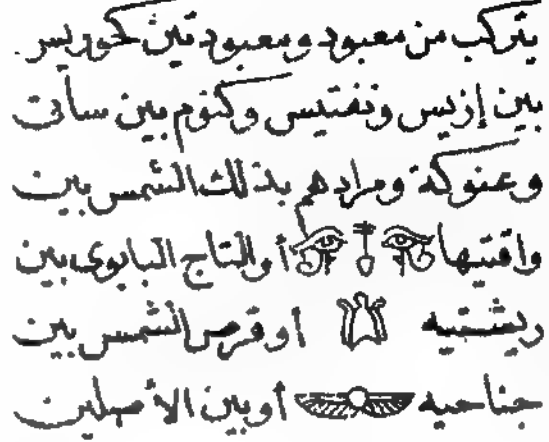 يتركب من معبود ومعبودتين كحوريس
بين إزيس ونفتيس وكنوم بين ساتى
وعنوكة ومرادهم بذلك الشمس بين
واقتيها أو التاج البابوى بين
ريشتيه اوقرص الشمس بين
جناحيه أوبين الأصلين